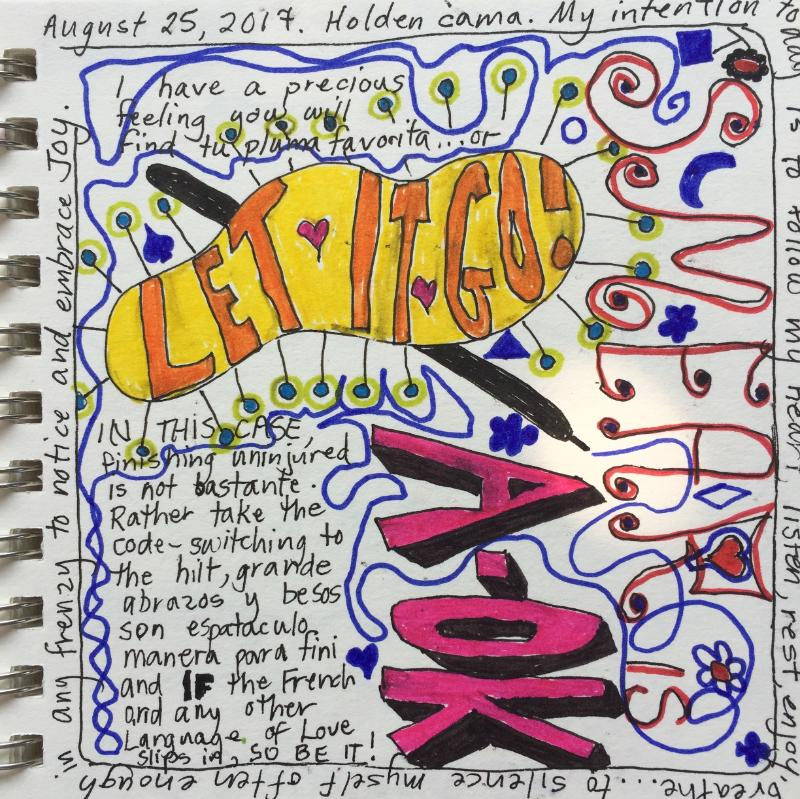 August 25, 2017. Holden cama. My intention today
is to follow my heart, listen, rest, enjoy,
breathe...to silence myself often enough
in any frenzy to notice and embrace Joy.
I have a precious
feeling you will
find tu pluma favorita...or
LET IT GO!
SMEAR IS
A-OK
IN THIS CASE,
finishing uninjured
is not bastante.
Rather take the
code-switching to
the hilt, grande
abrazos y besos
son espataculo
manera para fini
and IF the French
and any other
Language of Love
slips in, SO BE IT!